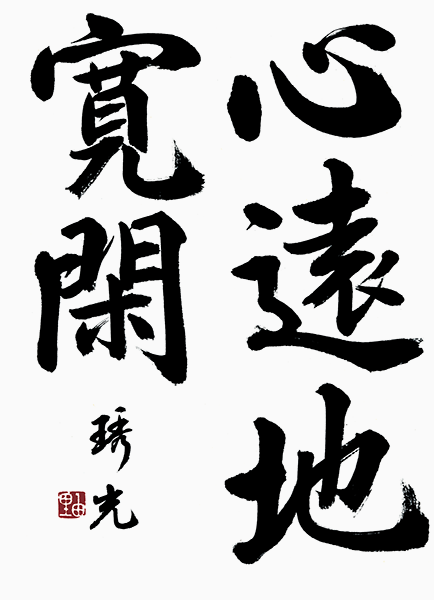 心遠地
寛閑
琇光